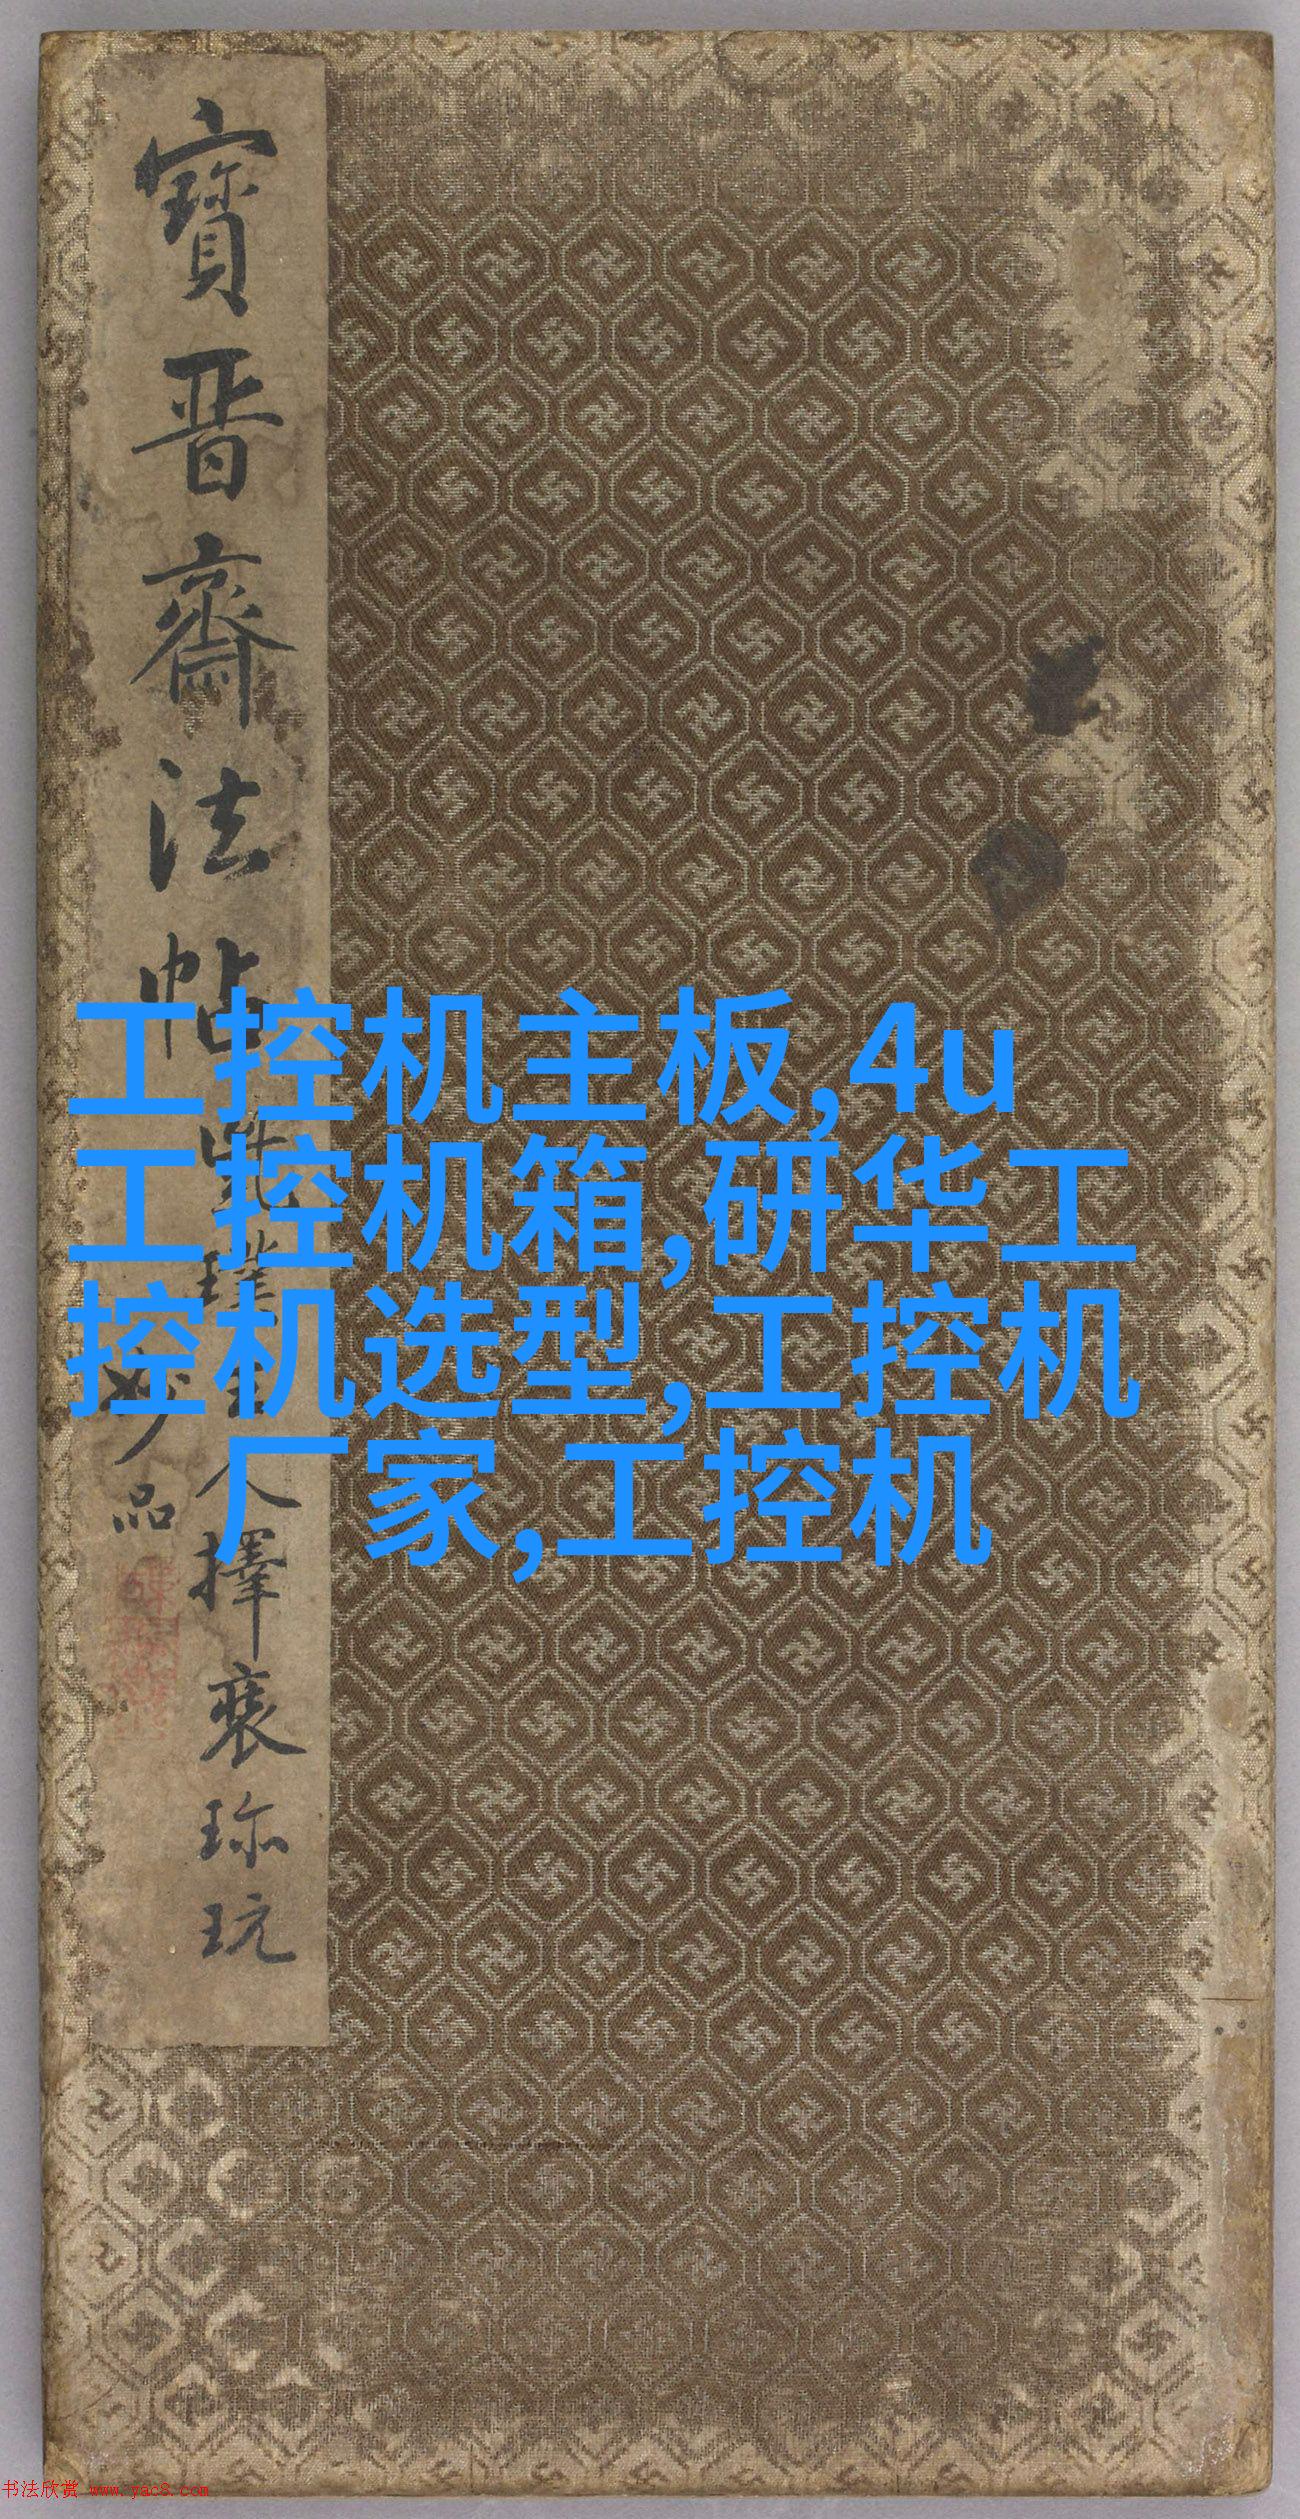 寶晋齋法帖
璞
人擇裘珎玩
妙品
工控机主板,4u
工控机箱,研华工
控机选型,工控机
厂家,工控机
书法欣赏 www.yac8.com